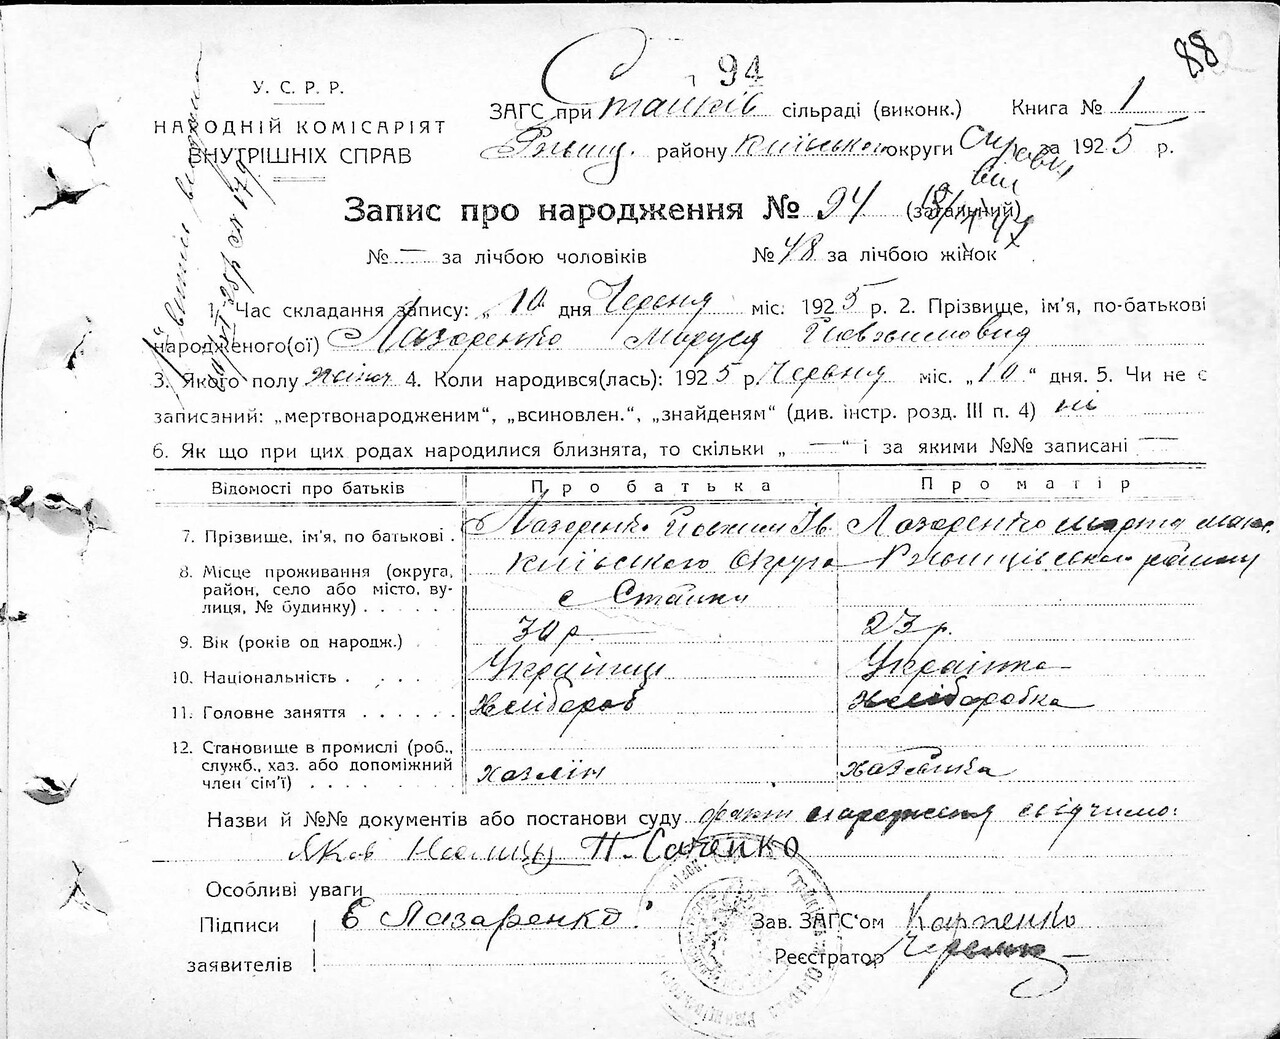 94
88
У. С. Р. Р.
НАРОДНІЙ КОМІСАРІЯТ
ВНУТРІШНІХ СПРАВ
ЗАГС при Стайків сільраді (виконк.) Книга № 1
району Київської округи за 1925 р.
Запис про народження № 94 (загальний)
№ — за лічбою чоловіків № 48 за лічбою жінок
1. Час складання запису: „10 дня Червня міс. 1925 р. 2. Прізвище, ім'я, по-батькові
народженого(ої) Лазоренко Маруся Йовхимовна
3. Якого полу жіноч 4. Коли народився(лась): 1925 р. Червня міс. „10“ дня. 5. Чи не є
записаний: „мертвонародженим“, „всиновлен.“, „знайденям“ (див. інстр. розд. III п. 4) ні
6. Як що при цих родах народилися близнята, то скільки „—“ і за якими №№ записані —
Відомості про батьків Про батька Про матір
7. Прізвище, ім'я, по батькові . Лазоренко Йовхим Ів. Лазоренко Марта
8. Місце проживання (округа, Київського Округа Ржищівського району
район, село або місто, ву-
лиця, № будинку) . . . . . с Стайки
9. Вік (років од народж.) 30 р. 23 р.
10. Національність . . . . . Українці Українка
11. Головне заняття . . . . . . Хлібороб Хліборобка
12. Становище в промислі (роб.,
служб., хаз. або допоміжний
член сім'ї) . . . . . . . хазяїн хазяйка
Назви й №№ документів або постанови суду факт народження свідчимо:
Яков П. Саченко
Особливі уваги
Підписи Є Лазаренко Зав. ЗАГС'ом Карпенко
заявителів Реєстратор